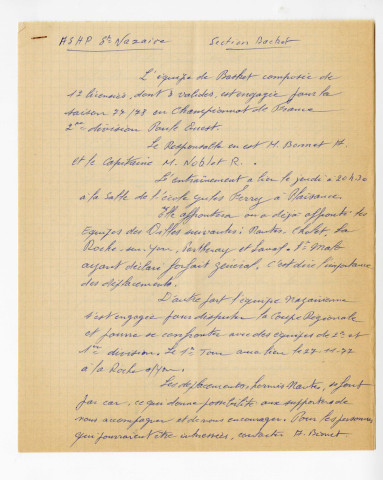 ASHP St Nazaire Section Basket
L'équipe de Basket composée de
12 licenciés, dont 3 valides, est engagée pour la
saison 77/78 en Championnat de France
2ème division Poule Ouest.
Le Responsable en est M. Bonnet A.
et le Capitaine M. Noblot R.
L'entraînement a lieu le jeudi à 20h30
à la Salle de l'école Jules Ferry à Plaisance.
Elle affrontera ou a déjà affronté les
Equipes des Villes suivantes : Nantes, Cholet, La
Roche-sur-Yon, et Laval. St Malo
ayant déclaré forfait général. C'est dire l'importance
des déplacements.
D'autre part l'équipe Nazairienne
s'est engagée pour disputer la Coupe Régionale
et pourra se confronter avec des équipes de 1ère et
division. Le 1er Tour aura lieu le 27-11-77
à la Roche s/Yon.
Les déplacements, hormis Nantes, se font
par car, ce qui donne possibilité aux supporters de
nous accompagner et de nous encourager. Pour les personnes
qui pourraient être intéressées, contacter A. Bonnet